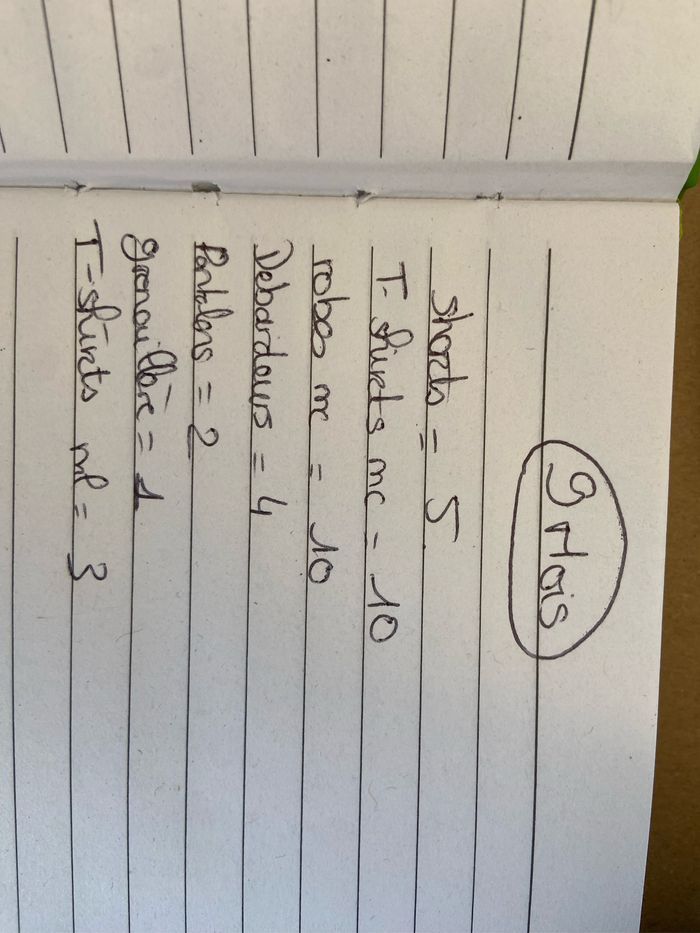 9 Mois
shorts = 5
T-shirts mc = 10
robes mc = 10
Debardeurs = 4
Pantalons = 2
grenouillère = 1
T-shirts ml = 3